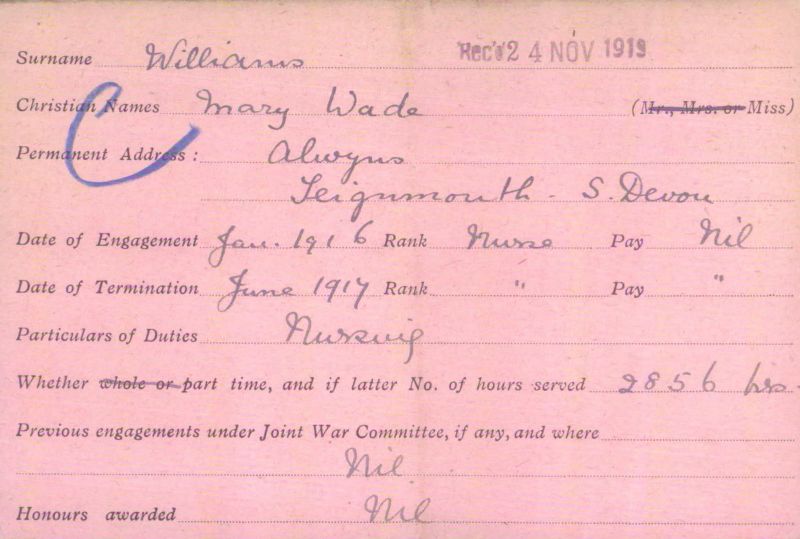 Rec'd 24 NOV 1919
Surname Williams
Christian Names Mary Wade (Mr., Mrs. or Miss)
Permanent Address: Alwyns
Teignmouth - S. Devon
Date of Engagement Jan. 1916 Rank Nurse Pay Nil
Date of Termination June 1917 Rank " Pay "
Particulars of Duties Nursing
Whether whole or part time, and if latter No. of hours served 2856 hrs.
Previous engagements under Joint War Committee, if any, and where
Nil
Honours awarded Nil
C